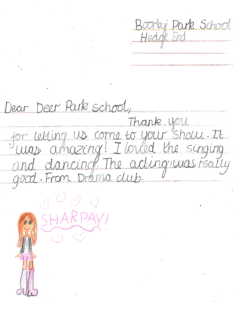 Boorley Park School
Hedge End
Dear Deer Park school,
Thank you
for letting us come to your show. It
was amazing! I loved the singing
and dancing. The acting was really
good. From Drama club.
SHARPAY!